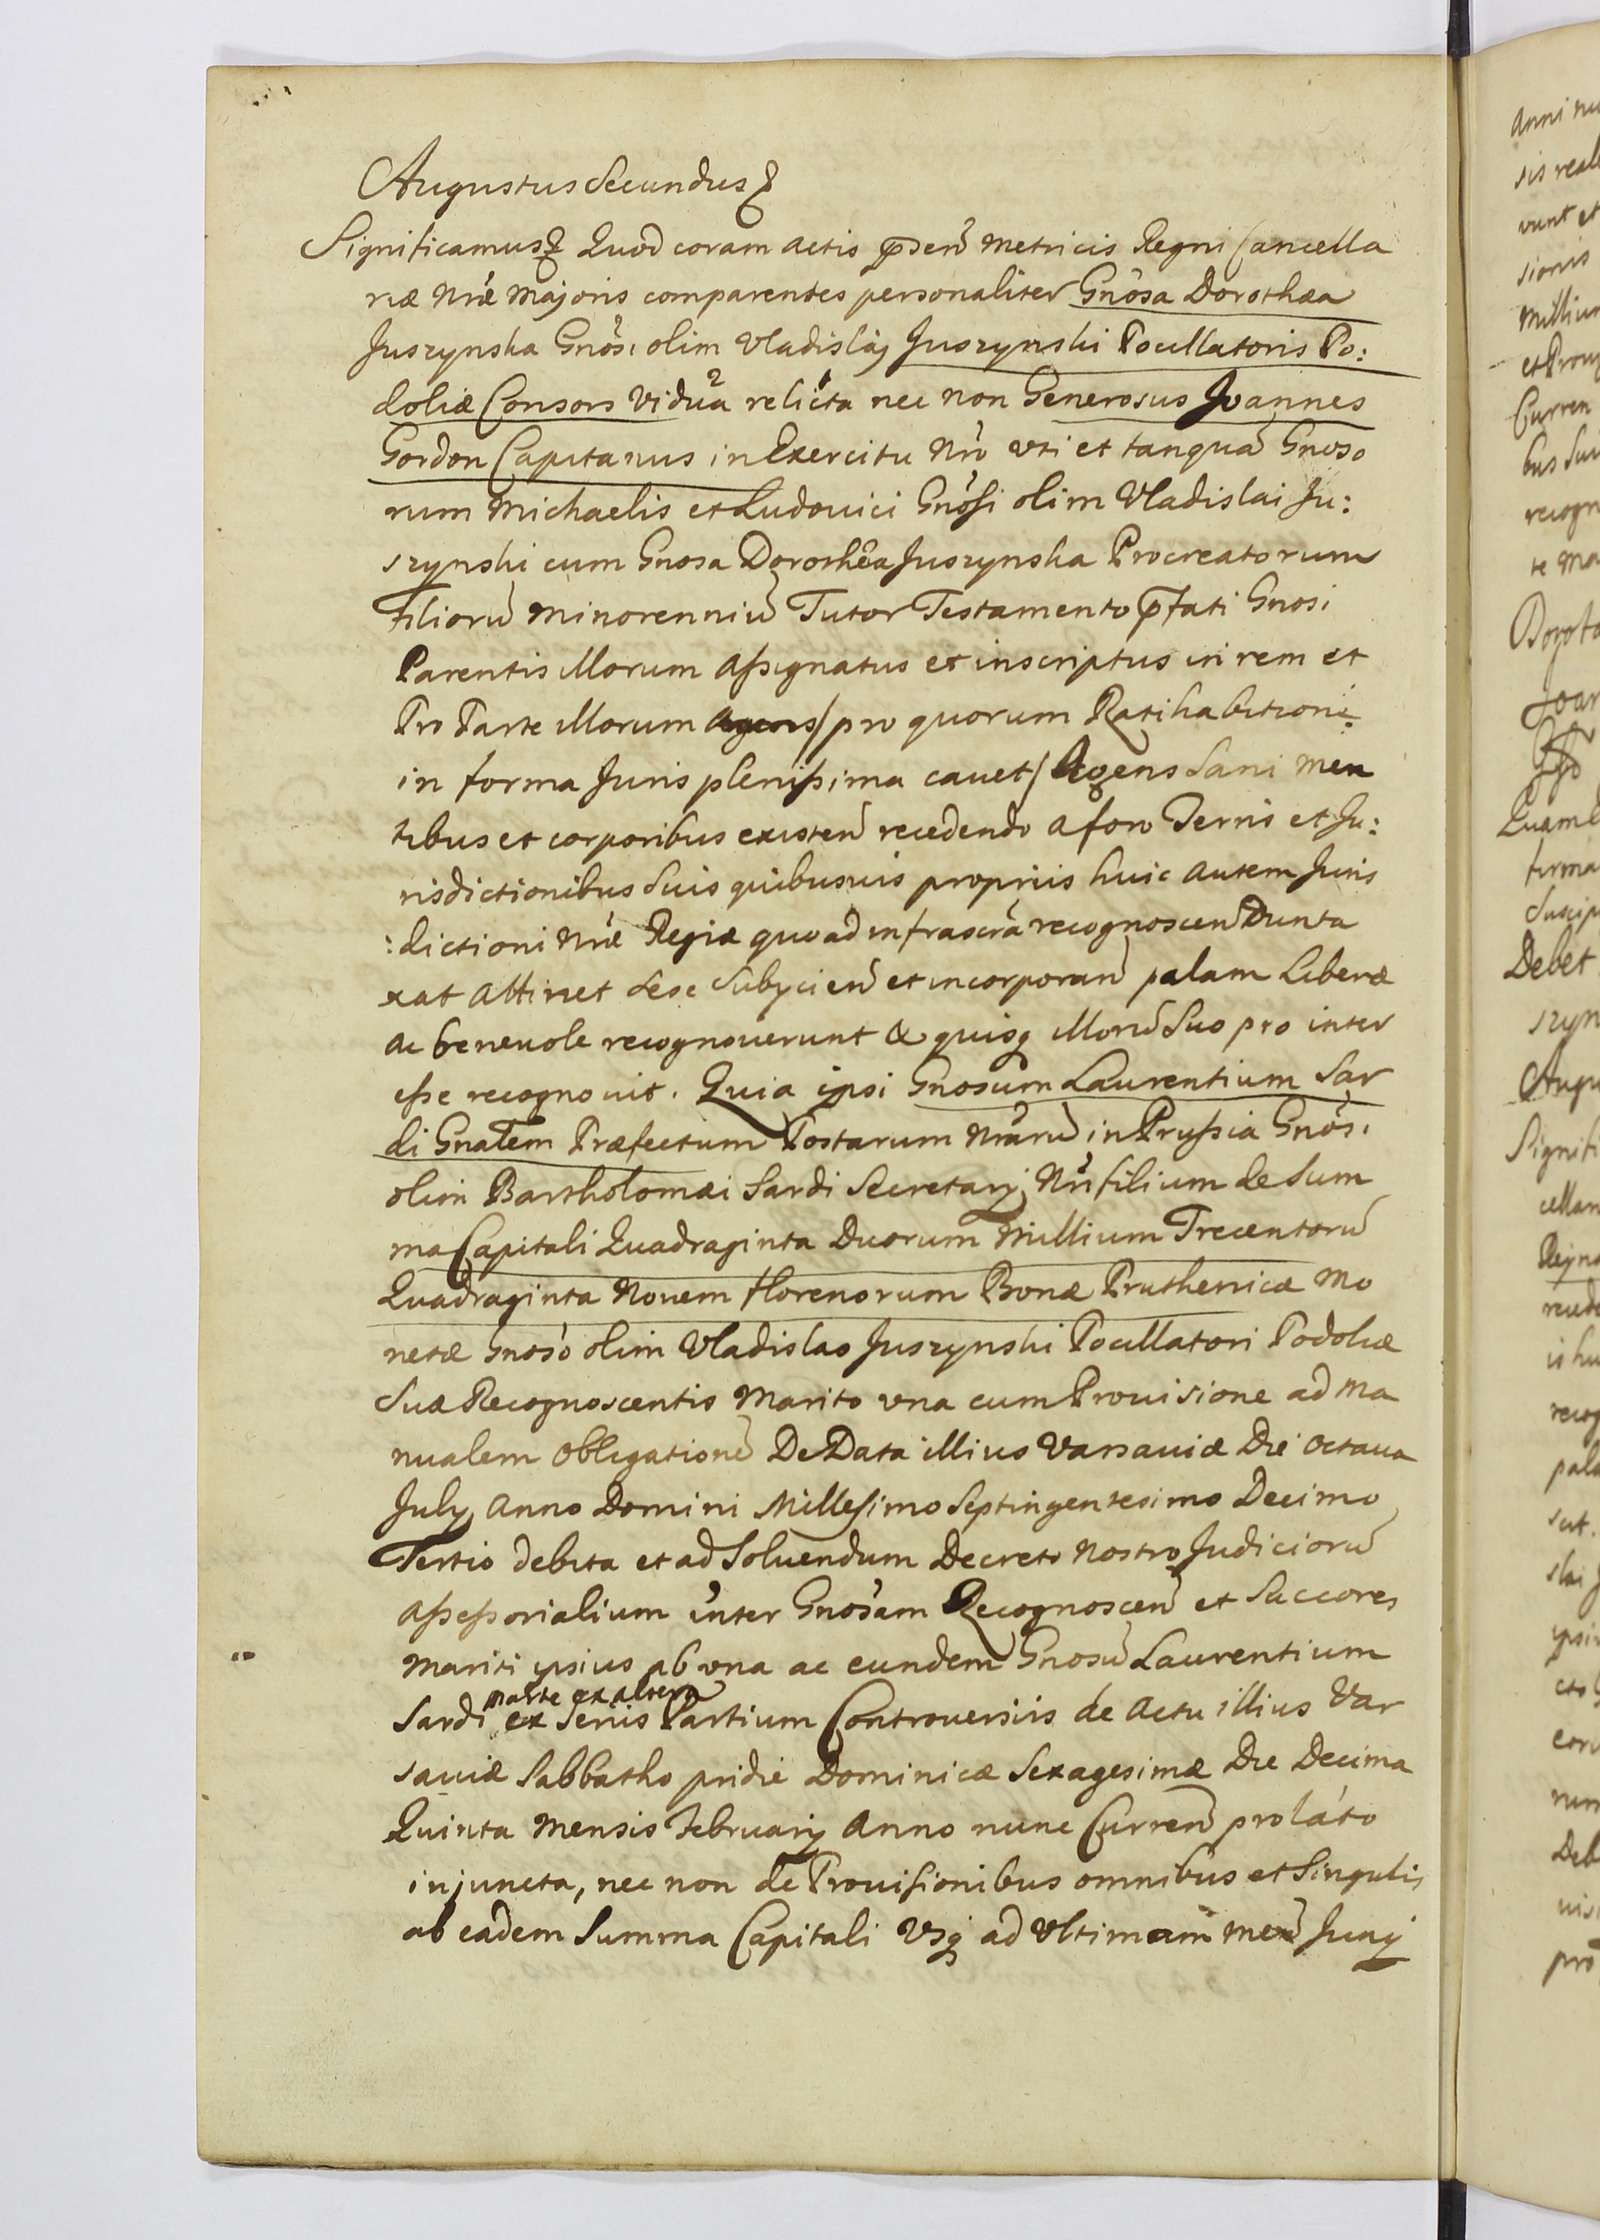 Augustus Secundus
Significamus Quod coram actis p̄sen̄ Metricis Regni Cancella
riæ Nræ Majoris comparentes personaliter Gnosa Dorothæa
Juszynska Gnosi olim Vladislaj Juszynski Pocillatoris Po:
doliæ Consors vidua relicta nec non Generosus Joannes
Gordon Capitanus in Exercitu Nro uti et tanquā Gnoso
rum Michaelis et Ludovici Gnosi olim Vladislai Ju:
szynski cum Gnosa Dorothea Juszynska Procreatorum
Filiorū Minorenniū Tutor Testamento p̄fati Gnosi
Parentis illorum assignatus et inscriptus in rem et
Pro Parte illorum agens/ pro quorum Ratihabitione
in forma Juris plenissima cavet/ Agens Sani men
tibus et corporibus existen̄ recedendo a foro Terris et Ju:
risdictionibus Suis quibusvis propriis huic autem Juris
:dictioni Nræ Regiæ quoad infrascrā recognoscen̄ Dunta
xat attinet sese Subjicien̄ et incorporan̄ palam Liberæ
ac benevole recognoverunt & quisq illorū Suo pro inter
esse recognovit. Quia ipsi Gnosum Laurentium Sar
di Gnalem Præfectum Postarum Nrarū in Prussia Gnosi
olim Bartholomæi Sardi Secretarij Nri filium de Sum
ma Capitali Quadraginta Duorum Millium Trecentorū
Quadraginta Novem florenorum Bonæ Pruthenicæ Mo
netæ Gnoso olim Vladislao Juszynski Pocillatori Podoliæ
Suæ Recognoscentis Marito una cum Provisione ad Ma
nualem Obligationē De Data illius Varsaviæ Die Octava
July Anno Domini Millesimo Septingentesimo Decimo
Tertio debita et ad Solvendum Decreto Nostro Judiciorū
Assessorialium inter Gnosam Recognoscen̄ et Succores
Mariti ipsius ab una ac eundem Gnosū Laurentium
parte ex altera
Sardi ex Seriis Partium Controversiis de actu illius Var
saviæ Sabbatho pridie Dominicæ Sexagesimæ Die Decima
Quinta Mensis February Anno nunc Curren̄ prolato
injuncta, nec non de Provisionibus omnibus et Singulis
ab eadem Summa Capitali Usq ad Ultimam men̄ Junij